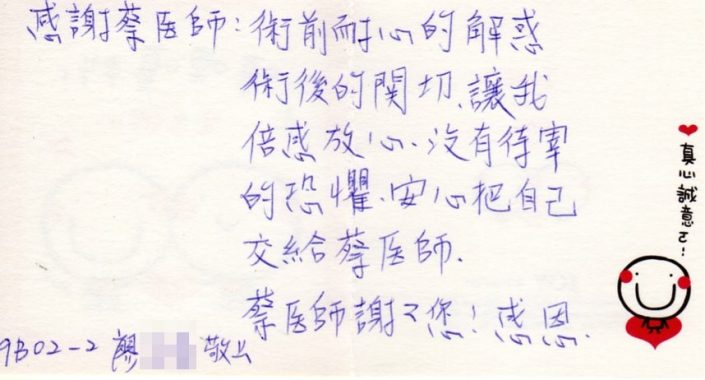 感謝蔡医師:術前耐心的解惑
術後的関切、讓我
倍感放心、沒有待宰
的恐懼、安心把自己
交給蔡医師.
蔡医師謝々您!感恩.
9B02-2 廖 敬上
真心誠意ㄛ…